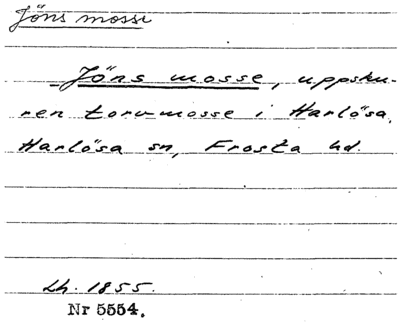 Jöns mosse
Jöns mosse, uppsku-
ren torvmosse i Harlösa,
Harlösa sn, Frosta hd.
Lh. 1855.
Nr 5554.